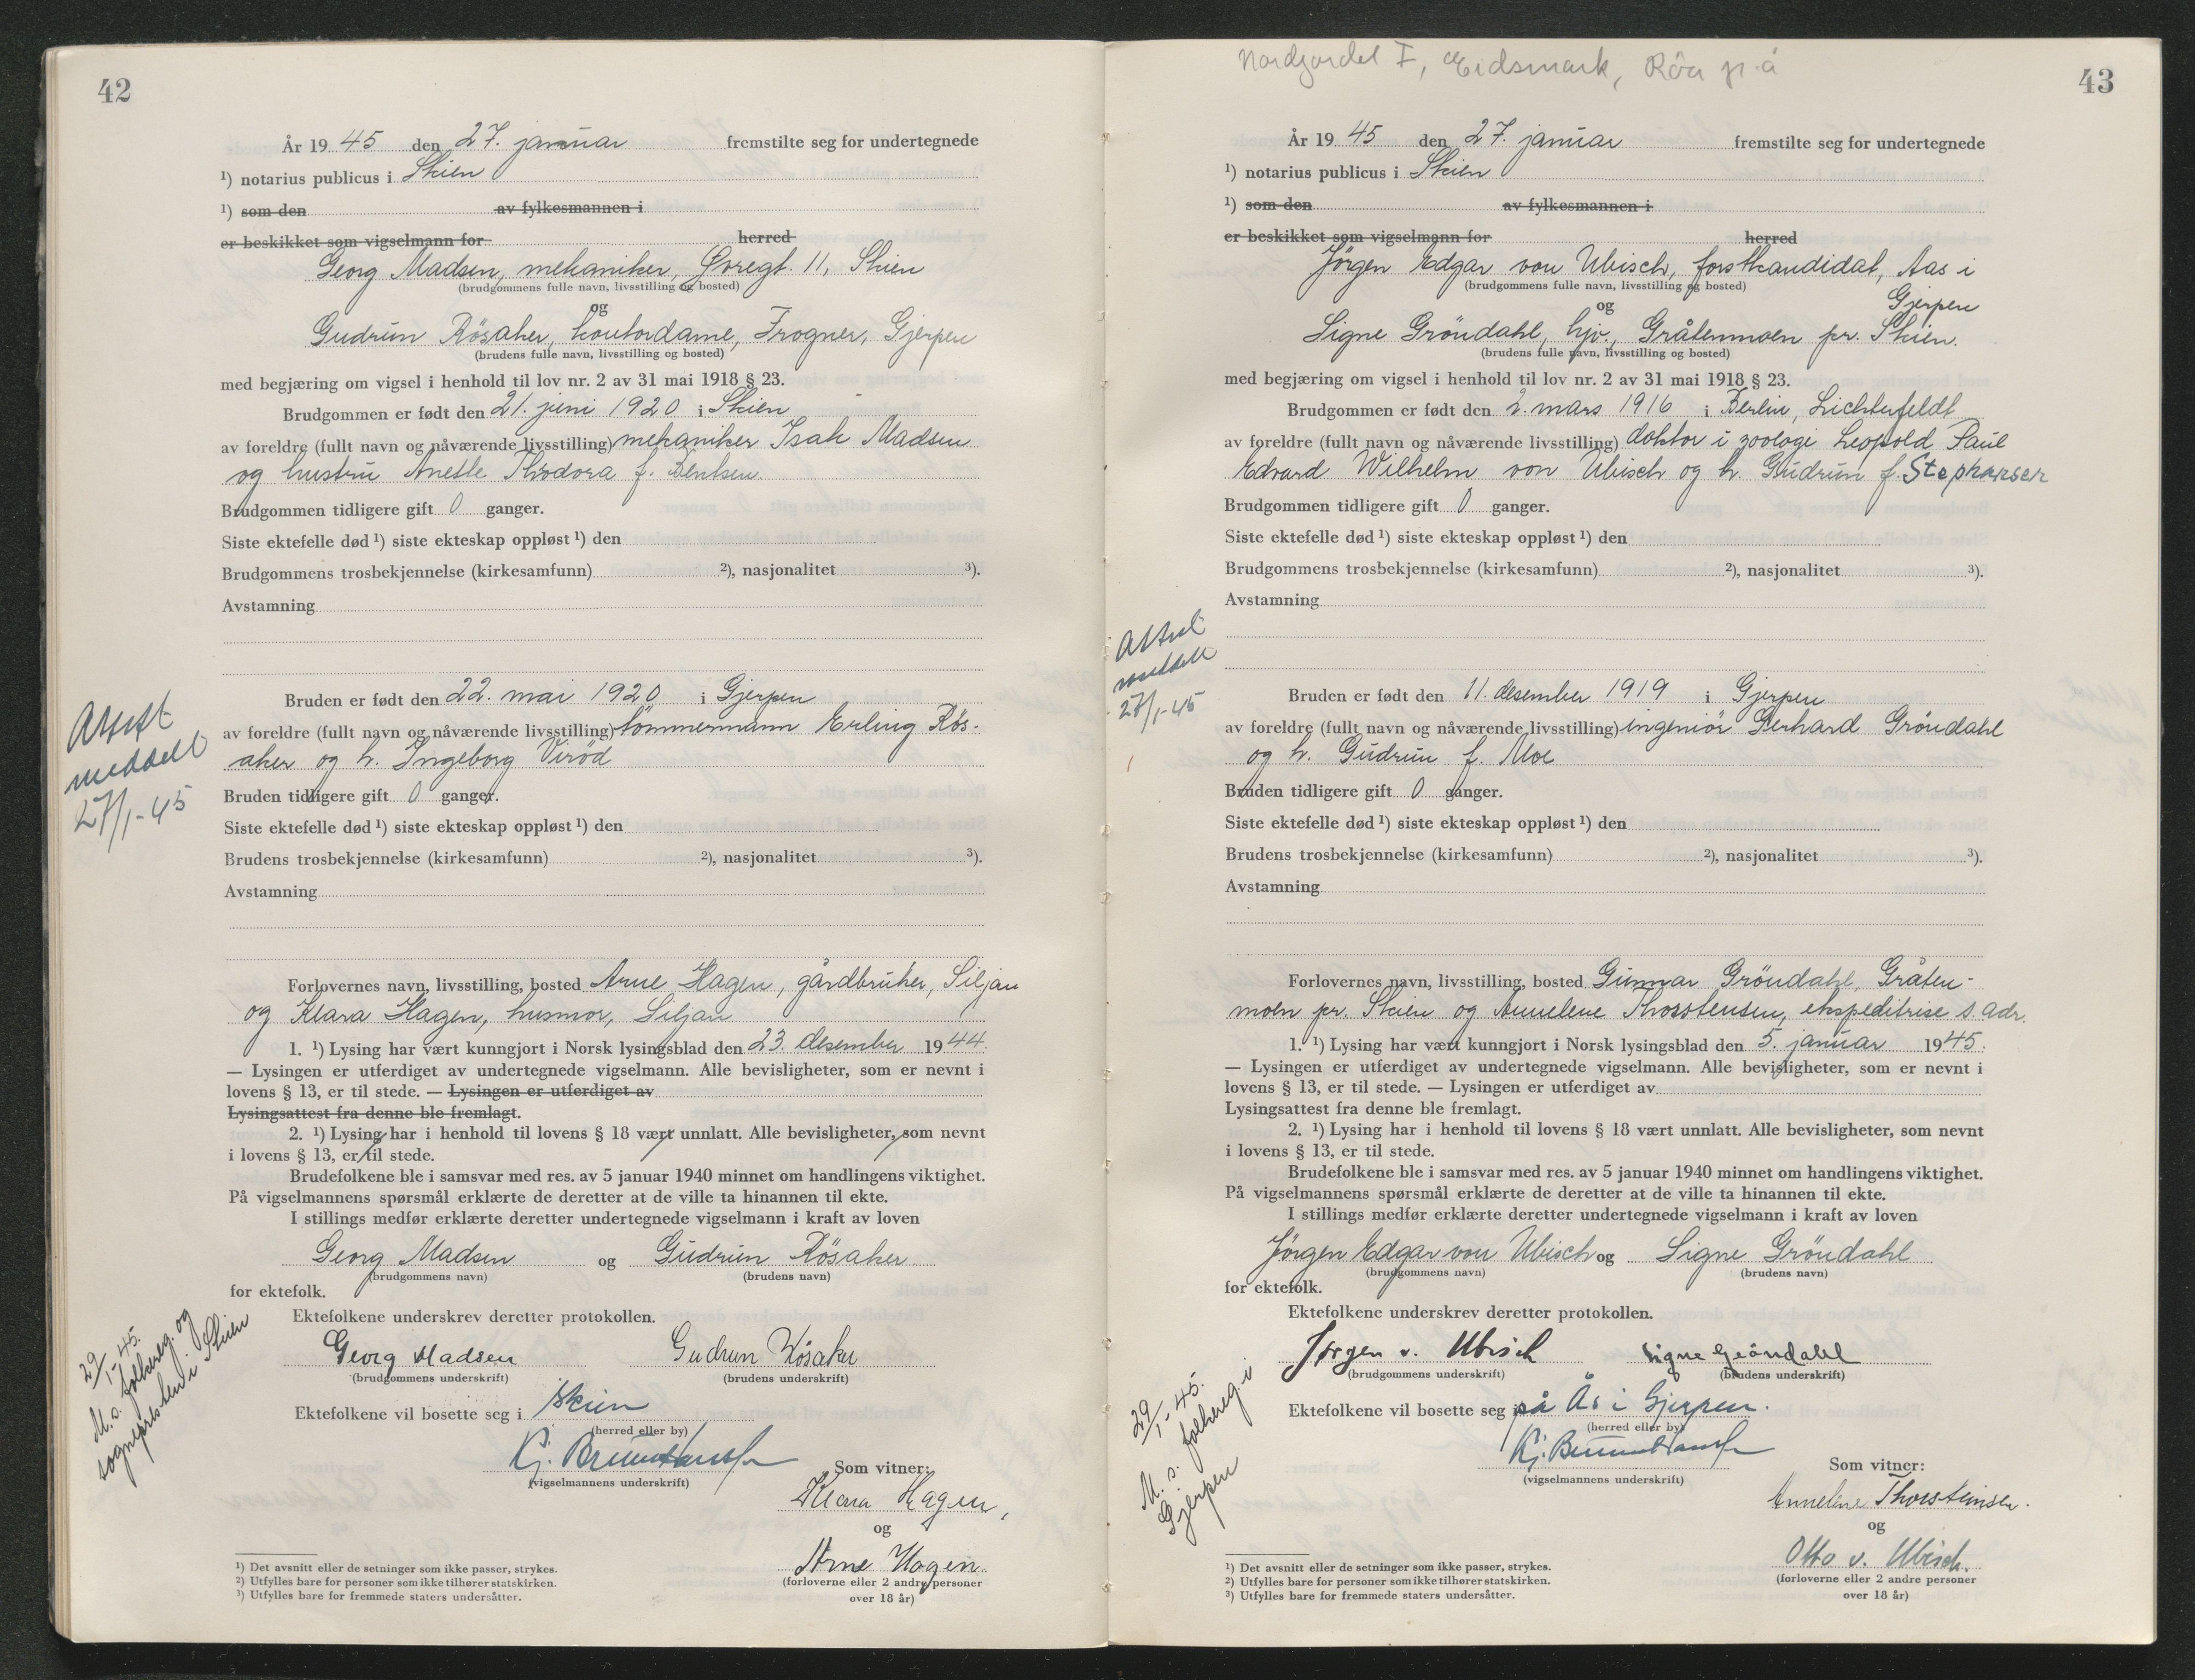 42
År 19 45 den 27. januar fremstilte seg for undertegnede
¹) notarius publicus i Skien
¹) som den av fylkesmannen i
er beskikket som vigselmann for herred
Georg Madsen, mekaniker, Øvregt. 11, Skien
(brudgommens fulle navn, livsstilling og bosted)
og
Gudrun Rösaker, kontordame, Frogner, Gjerpen
(brudens fulle navn, livsstilling og bosted)
med begjæring om vigsel i henhold til lov nr. 2 av 31 mai 1918 § 23.
Brudgommen er født den 21. juni 1920 i Skien
av foreldre (fullt navn og nåværende livsstilling) mekaniker Isak Madsen
og hustru Anette Thodora f. Bentsen
Brudgommen tidligere gift 0 ganger.
Siste ektefelle død ¹) siste ekteskap oppløst ¹) den
Brudgommens trosbekjennelse (kirkesamfunn) ²), nasjonalitet ³).
Avstamning
Bruden er født den 22. mai 1920 i Gjerpen
av foreldre (fullt navn og nåværende livsstilling) tömmermann Erling Rös-
aker og h. Ingeborg Viröd
Bruden tidligere gift 0 ganger.
Siste ektefelle død ¹) siste ekteskap oppløst ¹) den
Brudens trosbekjennelse (kirkesamfunn) ²), nasjonalitet ³).
Avstamning
Attest
meddelt
27/1-45
Forlovernes navn, livsstilling, bosted Arne Hagen, gårdbruker, Siljan
og Klara Hagen, husmor, Siljan
1. ¹) Lysing har vært kunngjort i Norsk lysingsblad den 23. desember 1944.
— Lysingen er utferdiget av undertegnede vigselmann. Alle bevisligheter, som er nevnt i
lovens § 13, er til stede. — Lysingen er utferdiget av
Lysingsattest fra denne ble fremlagt.
2. ¹) Lysing har i henhold til lovens § 18 vært unnlatt. Alle bevisligheter, som nevnt
i lovens § 13, er til stede.
Brudefolkene ble i samsvar med res. av 5 januar 1940 minnet om handlingens viktighet.
På vigselmannens spørsmål erklærte de deretter at de ville ta hinannen til ekte.
I stillings medfør erklærte deretter undertegnede vigselmann i kraft av loven
Georg Madsen og Gudrun Rösaker
(brudgommens navn) (brudens navn)
for ektefolk.
Ektefolkene underskrev deretter protokollen.
Georg Madsen Gudrun Rösaker
(brudgommens underskrift) (brudens underskrift)
Ektefolkene vil bosette seg i Skien
(herred eller by)
Kj. Brummenæs
(vigselmannens underskrift)
Som vitner:
Klara Hagen,
og
Arne Hagen.
(forloverne eller 2 andre personer
over 18 år)
29/1-45.
M. s. folkereg. og
sognepresten i Skien
¹) Det avsnitt eller de setninger som ikke passer, strykes.
²) Utfylles bare for personer som ikke tilhører statskirken.
³) Utfylles bare for fremmede staters undersåtter.
Nordgardet I, Eidsmark, Röa
43
År 19 45 den 27. januar fremstilte seg for undertegnede
¹) notarius publicus i Skien
¹) som den av fylkesmannen i
er beskikket som vigselmann for herred
Jörgen Edgar von Ubisch, forstkandidat, Aas i
Gjerpen
(brudgommens fulle navn, livsstilling og bosted)
og
Signe Gröndahl, hjv., Gråtenmoen pr. Skien.
(brudens fulle navn, livsstilling og bosted)
med begjæring om vigsel i henhold til lov nr. 2 av 31 mai 1918 § 23.
Brudgommen er født den 2. mars 1916 i Berlin, Lichterfeldt
av foreldre (fullt navn og nåværende livsstilling) doktor i zoologi Leopold Paul
Edvard Wilhelm von Ubisch og h. Gudrun f. Stephansen
Brudgommen tidligere gift 0 ganger.
Siste ektefelle død ¹) siste ekteskap oppløst ¹) den
Brudgommens trosbekjennelse (kirkesamfunn) ²), nasjonalitet ³).
Avstamning
Attest
meddelt
27/1-45
Bruden er født den 11. desember 1919 i Gjerpen
av foreldre (fullt navn og nåværende livsstilling) ingeniör Gerhard Gröndahl
og h. Gudrun f. Moe
Bruden tidligere gift 0 ganger.
Siste ektefelle død ¹) siste ekteskap oppløst ¹) den
Brudens trosbekjennelse (kirkesamfunn) ²), nasjonalitet ³).
Avstamning
Forlovernes navn, livsstilling, bosted Gunnar Gröndahl, Gråten-
moen pr. Skien og Annelene Thorstensen, ekspeditrise s. adr.
1. ¹) Lysing har vært kunngjort i Norsk lysingsblad den 5. januar 1945.
— Lysingen er utferdiget av undertegnede vigselmann. Alle bevisligheter, som er nevnt i
lovens § 13, er til stede. — Lysingen er utferdiget av
Lysingsattest fra denne ble fremlagt.
2. ¹) Lysing har i henhold til lovens § 18 vært unnlatt. Alle bevisligheter, som nevnt
i lovens § 13, er til stede.
Brudefolkene ble i samsvar med res. av 5 januar 1940 minnet om handlingens viktighet.
På vigselmannens spørsmål erklærte de deretter at de ville ta hinannen til ekte.
I stillings medfør erklærte deretter undertegnede vigselmann i kraft av loven
Jörgen Edgar von Ubisch og Signe Gröndahl
(brudgommens navn) (brudens navn)
for ektefolk.
Ektefolkene underskrev deretter protokollen.
Jörgen v. Ubisch Signe Gröndahl
(brudgommens underskrift) (brudens underskrift)
Ektefolkene vil bosette seg i på Ås i Gjerpen.
(herred eller by)
(vigselmannens underskrift)
Som vitner:
Annelene Thorsteinsen.
og
Otto v. Ubisch.
(forloverne eller 2 andre personer
over 18 år)
29/1-45.
M. s. folkereg. i
Gjerpen
¹) Det avsnitt eller de setninger som ikke passer, strykes.
²) Utfylles bare for personer som ikke tilhører statskirken.
³) Utfylles bare for fremmede staters undersåtter.